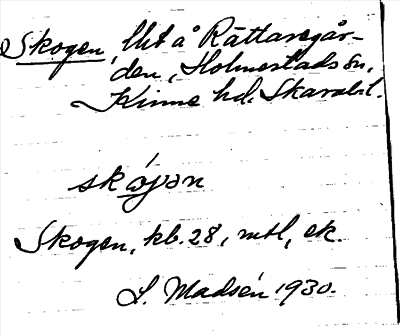 Skogen, lht å Rättaregår-
den, Holmestads sn,
Kinne hd, Skarabl.
skógən
Skogen, kb. 28, mtl, ek.
S. Madsén 1930.